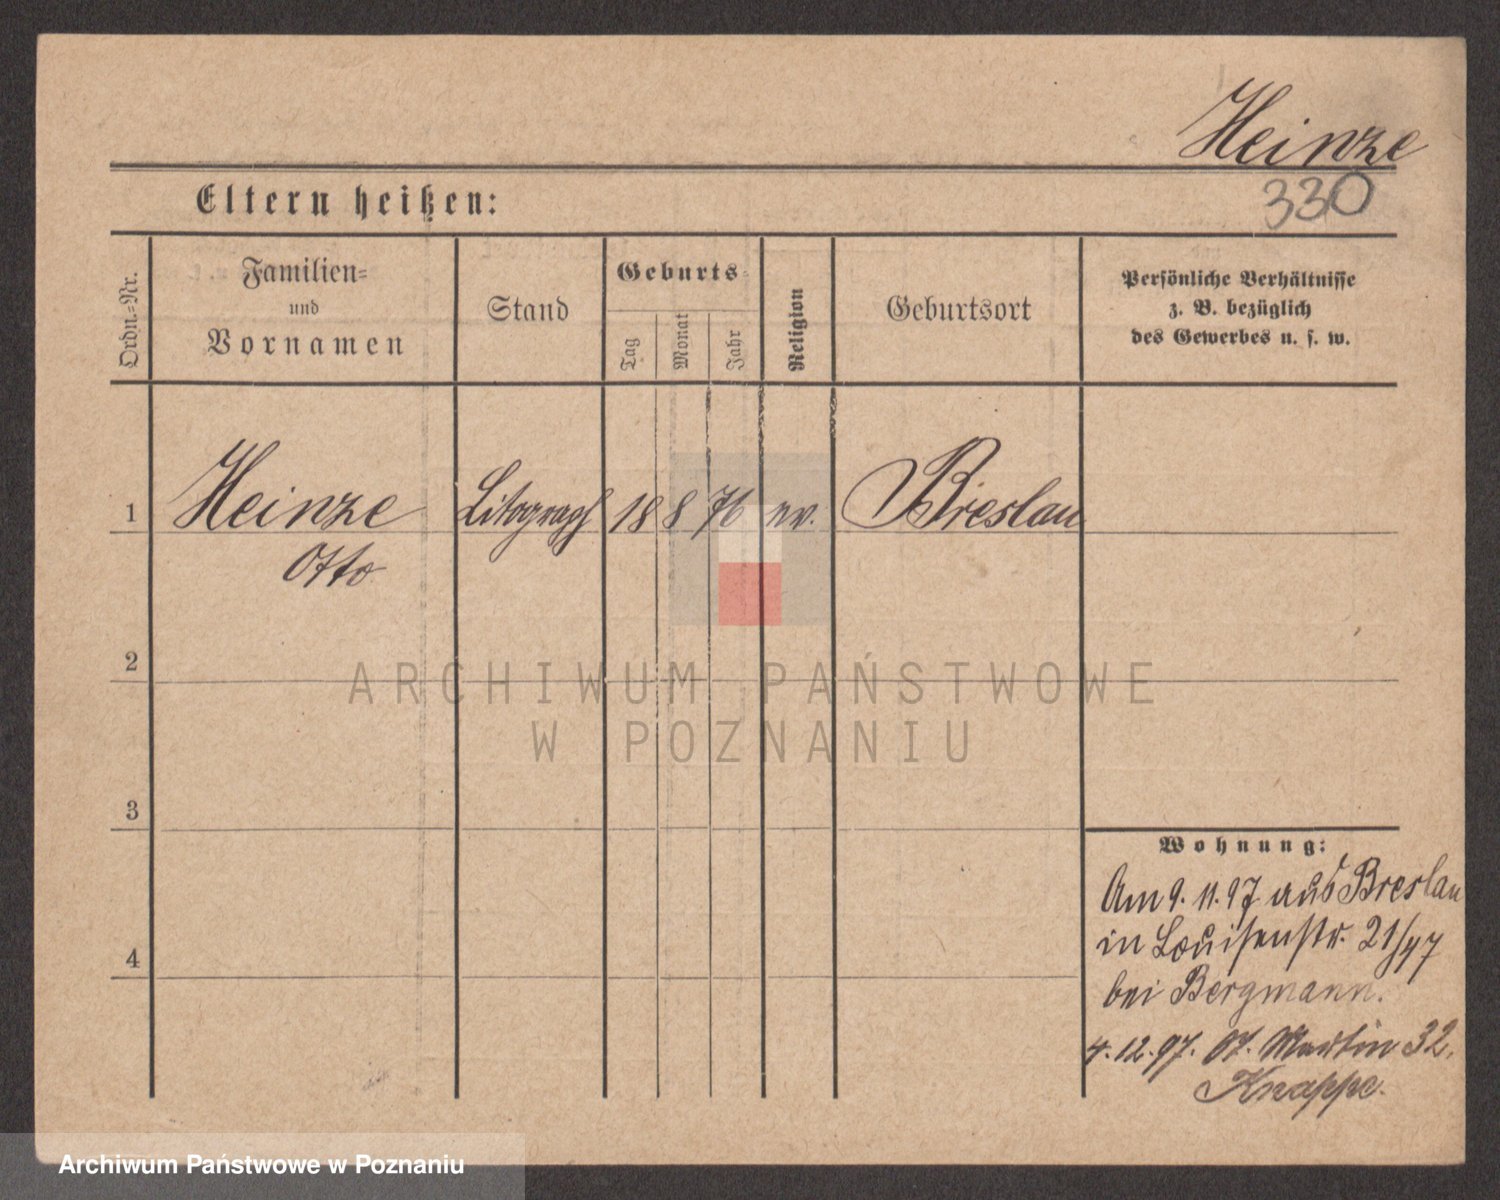 Heinze
330
Eltern heißen:
Ordn.-Nr.
Familien-
und
Vornamen
Stand
Geburts-
Tag
Monat
Jahr
Religion
Geburtsort
Persönliche Verhältnisse
z. B. bezüglich
des Gewerbes u. s. w.
1 Heinze Litograph 18 8 76 ev. Breslau
Otto
2
3
4
Wohnung:
Am 9. 11. 97 aus Breslau
in Louisenstr. 21/97
bei Bergmann.
4. 12. 97. St. Martin 32,
Knappe.
ARCHIWUM PAŃSTWOWE
W POZNANIU
Archiwum Państwowe w Poznaniu